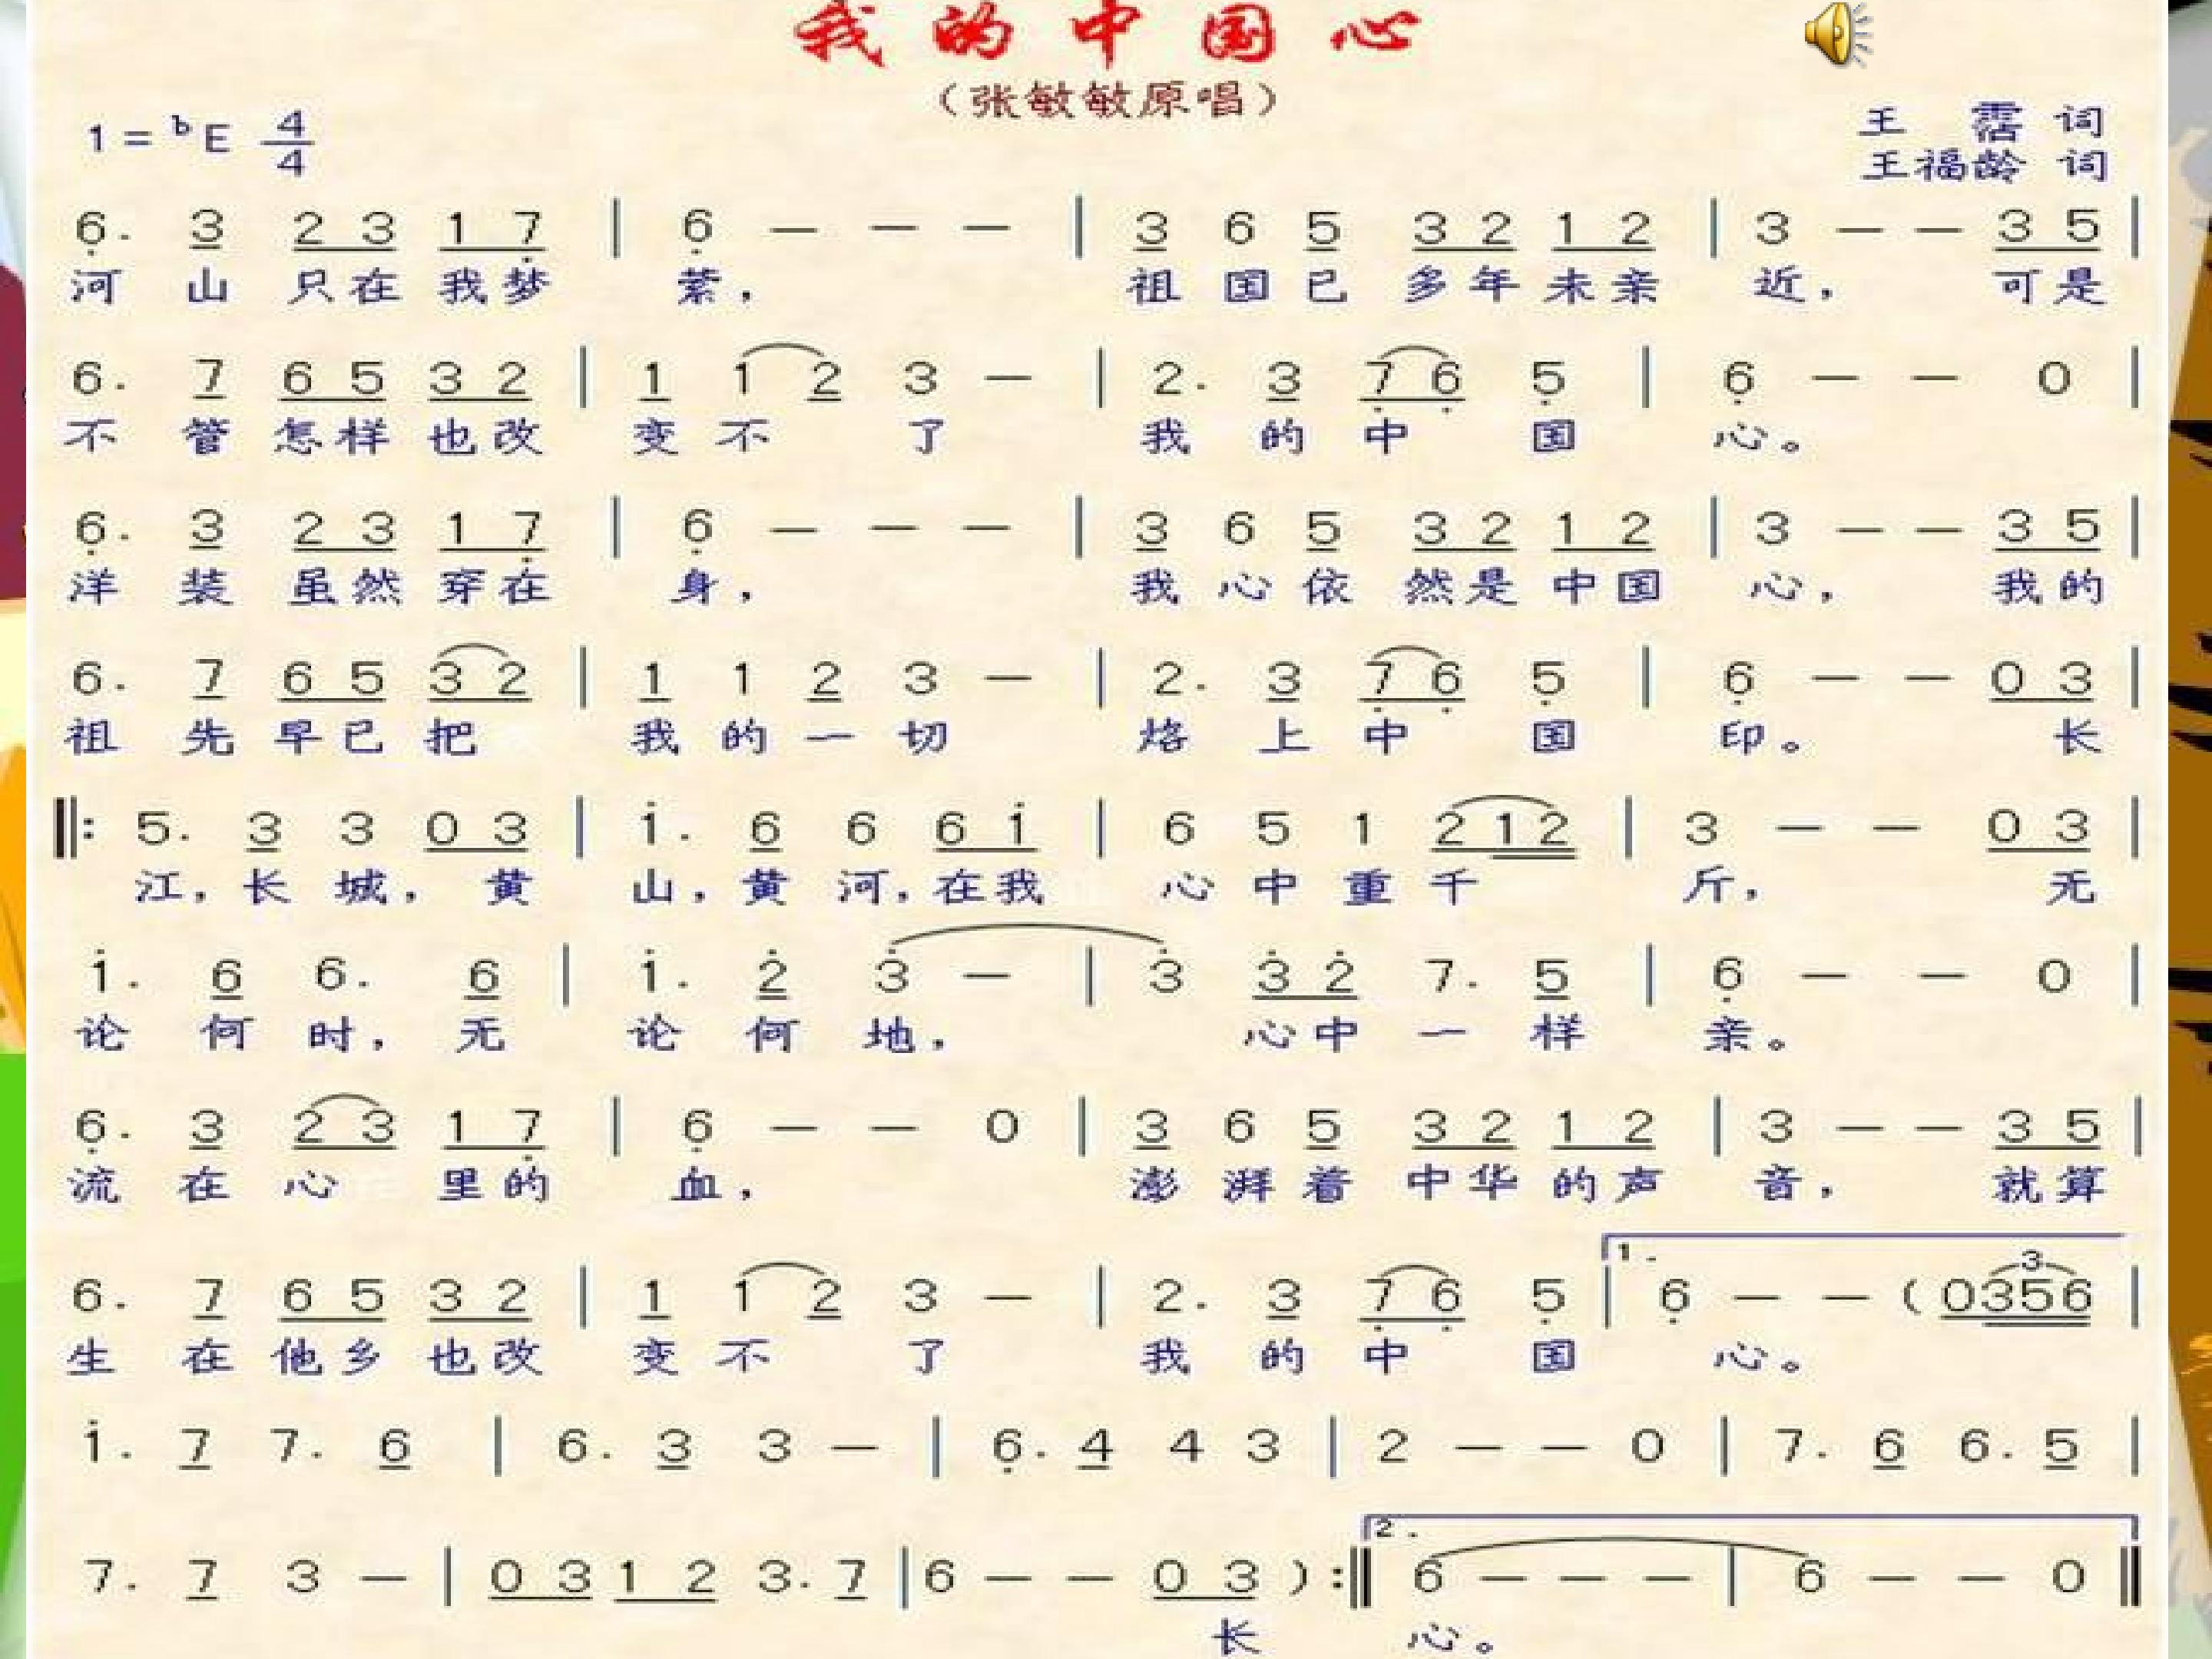 我的中国心
（张敏敏原唱）
1=ᵇE 4/4
王 霑 词
王福龄 词
6. 3 2 3 1 7 | 6 — — — | 3 6 5 3 2 1 2 | 3 — — 3 5 |
河 山 只在 我梦 萦， 祖 国 已 多年 未亲 近， 可是
6. 7 6 5 3 2 | 1 1 2 3 — | 2. 3 7 6 5 | 6 — — 0 |
不 管 怎样 也改 变 不 了 我 的 中 国 心。
6. 3 2 3 1 7 | 6 — — — | 3 6 5 3 2 1 2 | 3 — — 3 5 |
洋 装 虽然 穿在 身， 我 心 依 然是 中国 心， 我的
6. 7 6 5 3 2 | 1 1 2 3 — | 2. 3 7 6 5 | 6 — — 0 3 |
祖 先 早已 把 我 的 一 切 烙 上 中 国 印。 长
‖: 5. 3 3 0 3 | i. 6 6 6 i | 6 5 1 2 1 2 | 3 — — 0 3 |
江，长 城， 黄 山，黄 河，在我 心 中 重 千 斤， 无
i. 6 6. 6 | i. 2 3 — | 3 3 2 7. 5 | 6 — — 0 |
论 何 时， 无 论 何 地， 心中 一 样 亲。
6. 3 2 3 1 7 | 6 — — 0 | 3 6 5 3 2 1 2 | 3 — — 3 5 |
流 在 心 里的 血， 澎 湃 着 中华 的声 音， 就算
1.
3
6. 7 6 5 3 2 | 1 1 2 3 — | 2. 3 7 6 5 | 6 — — （0356 |
生 在 他乡 也改 变 不 了 我 的 中 国 心。
i. 7 7. 6 | 6. 3 3 — | 6. 4 4 3 | 2 — — 0 | 7. 6 6. 5 |
2.
7. 7 3 — | 0 3 1 2 3. 7 | 6 — — 0 3 ）:‖ 6 — — — | 6 — — 0 ‖
长 心。